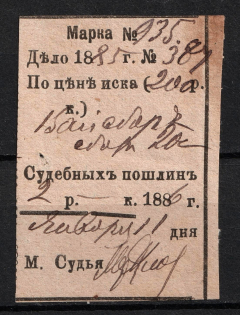 Марка № 935.
Дѣло 1885 г. № 387
По цѣнѣ иска (200 р.
к.)
сбор 20
Судебныхъ пошлинъ
2 р. — к. 1886 г.
Января 11 дня
М. Судья